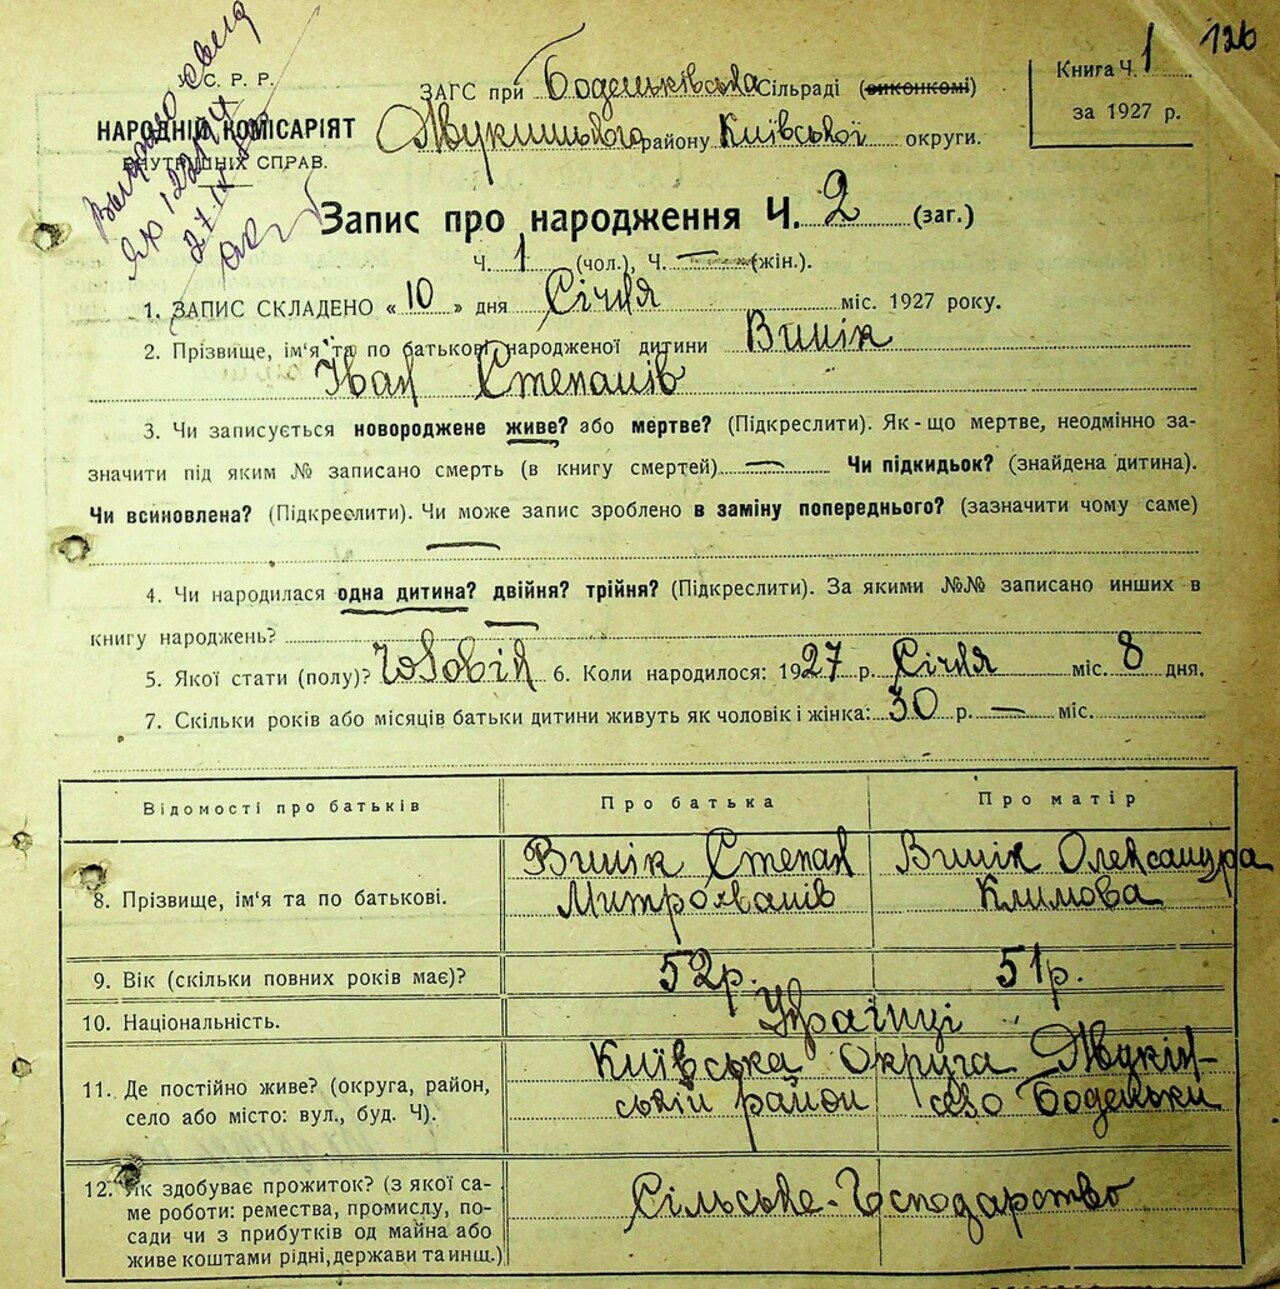 126
Книга Ч. 1
за 1927 р.
У. С. Р. Р.
НАРОДНІЙ КОМІСАРІЯТ
ВНУТРІШНІХ СПРАВ.
ЗАГС при Боденьківська Сільраді (виконкомі)
району Київської округи.
Запис про народження Ч. 2 (заг.)
Ч. 1 (чол.), Ч. — (жін.).
1. ЗАПИС СКЛАДЕНО «10» дня Січня міс. 1927 року.
2. Прізвище, ім'я та по батькові народженої дитини Винік
Іван Степанів
3. Чи записується новороджене живе? або мертве? (Підкреслити). Як-що мертве, неодмінно за-
значити під яким № записано смерть (в книгу смертей) — Чи підкидьок? (знайдена дитина).
Чи всиновлена? (Підкреслити). Чи може запис зроблено в заміну попереднього? (зазначити чому саме)
—
4. Чи народилася одна дитина? двійня? трійня? (Підкреслити). За якими №№ записано инших в
книгу народжень? —
5. Якої стати (полу)? Чоловік 6. Коли народилося: 1927 р. Січня міс. 8 дня.
7. Скільки років або місяців батьки дитини живуть як чоловік і жінка: 30 р. — міс.
Відомості про батьків Про батька Про матір
8. Прізвище, ім'я та по батькові. Винік Степан Митрохванів Винік Олександра Климова
9. Вік (скільки повних років має)? 52р. 51р.
10. Національність. Українці
11. Де постійно живе? (округа, район, Київська округа
село або місто: вул., буд. Ч). ський район село Боденьки
12. Як здобуває прожиток? (з якої са-
ме роботи: ремества, промислу, по- Сільське-Господарство
сади чи з прибутків од майна або
живе коштами рідні, держави та инш.)